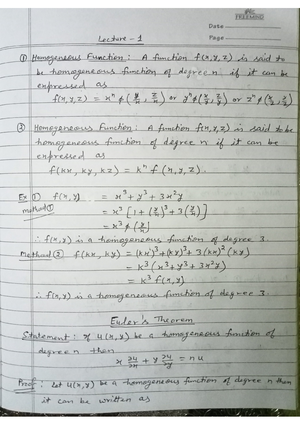 FREEMIND
Date
Page No
Lecture - 1
① Homogeneous Function : A function f(x,y,z) is said to
be homogeneous function of degree n if it can be
expressed as
f(x,y,z) = xⁿ ϕ(y/x, z/x) or yⁿ ϕ(x/y, z/y) or zⁿ ϕ(x/z, y/z)
② Homogeneous Function : A function f(x,y,z) is said to be
homogeneous function of degree n if it can be
expressed as
f(kx, ky, kz) = kⁿ f(x,y,z).
Ex ① f(x,y) = x³ + y³ + 3x²y
Method ① = x³ [1 + (y/x)³ + 3(y/x)]
= x³ ϕ(y/x)
∴ f(x,y) is a homogeneous function of degree 3.
Method ② f(kx, ky) = (kx)³ + (ky)³ + 3(kx)²(ky)
= k³ (x³ + y³ + 3x²y)
= k³ f(x,y)
∴ f(x,y) is a homogeneous function of degree 3.
Euler's Theorem
Statement : If u(x,y) be a homogeneous function of
degree n than
x ∂u/∂x + y ∂u/∂y = nu
Proof : Let u(x,y) be a homogeneous function of degree n than
it can be written as